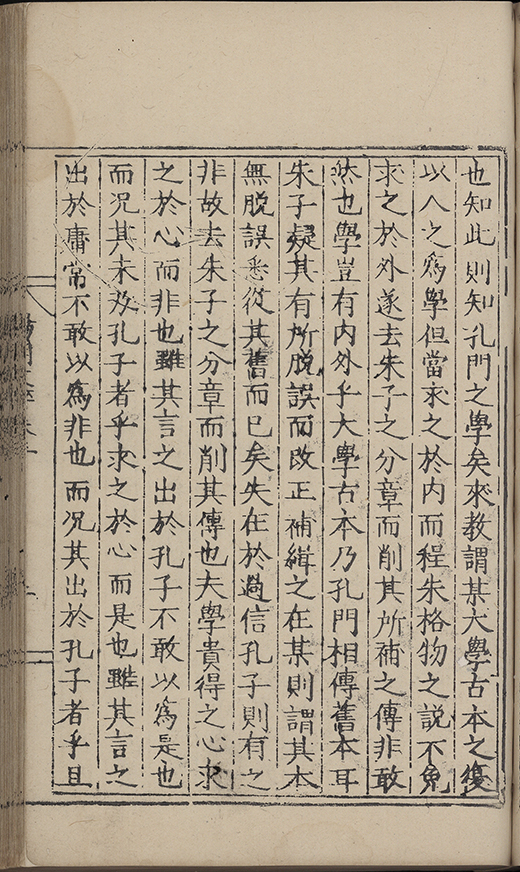 也知此則知孔門之學矣來教謂某大學古本之復
以人之爲學但當求之於內而程朱格物之說不免
求之於外遂去朱子之分章而削其所補之傳非敢
然也學豈有內外乎大學古本乃孔門相傳舊本耳
朱子疑其有所脫誤而改正補緝之在某則謂其本
無脫誤悉從其舊而已矣失在於過信孔子則有之
非故去朱子之分章而削其傳也夫學貴得之心求
之於心而非也雖其言之出於孔子不敢以爲是也
而况其未及孔子者乎求之於心而是也雖其言之
出於庸常不敢以爲非也而况其出於孔子者乎且